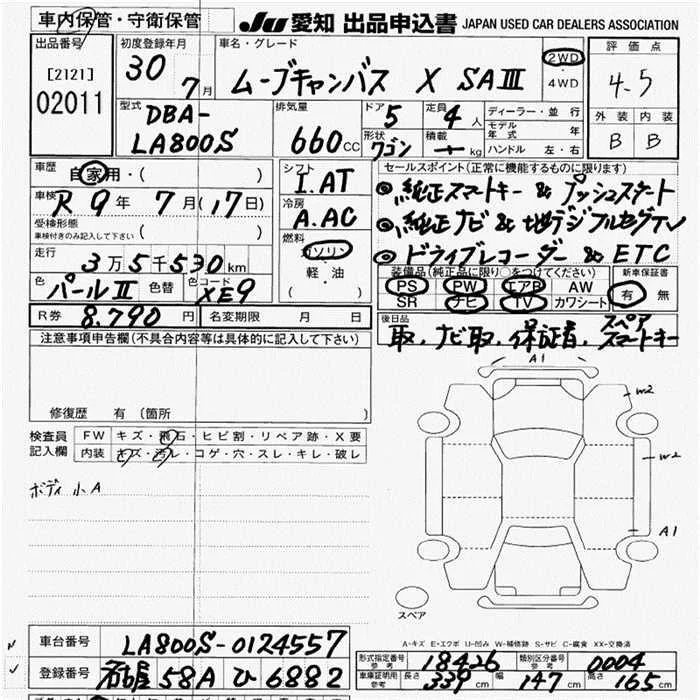 車内保管・守衛保管
JU 愛知 出品申込書 JAPAN USED CAR DEALERS ASSOCIATION
出品番号 [2121] 02011
初度登録年月 30 7月
車名・グレード ムーブキャンバス X SAⅢ
2WD・4WD
評価点 4.5
外装 内装
B B
型式 DBA-LA800S
排気量 660CC
ドア 5
定員 4人
形状 ワゴン
積載 kg
ディーラー・並行
モデル年式 年
ハンドル 左・右
車歴 自家用・( )
車検 R9年7月(17日)
受検形態 ( )
車検付きのみ記入して下さい
走行 3万5千530km
色 パールⅡ 色替 色コード XE9
シフト I.AT
冷房 A.AC
燃料 ガソリン・軽・油 ( )
セールスポイント(正常に機能するものに限ります)
◎純正スマートキー & プッシュスタート
◎純正ナビ & 地デジフルセグTV
◎ドライブレコーダー & ETC
装備品(純正品に限り○をつけてください)
PS PW エアB AW
SR ナビ TV カワシート
新車保証書 有 無
R券 8.790円 名変期限 月 日
後日品 取、ナビ取、保証書、スペアスマートキー
注意事項申告欄(不具合内容等は具体的に記入して下さい)
修復歴 有 (箇所 )
検査員記入欄
FW キズ・飛石・ヒビ割・リペア跡・X要
内装 キズ・汚レ・コゲ・穴・スレ・キレ・破レ
ボディ 小A
A1
W2
W2
A1
スペア
A-キズ E-エクボ U-凹み W-補修跡 S-サビ C-腐食 XX-交換済
車台番号 LA800S-0124557
登録番号 名古屋 58A ひ 6882
形式指定番号 参考 18426 類別区分番号 参考 0004
車庫証明用 参考 長さ 339cm 幅 147cm 高さ 165cm